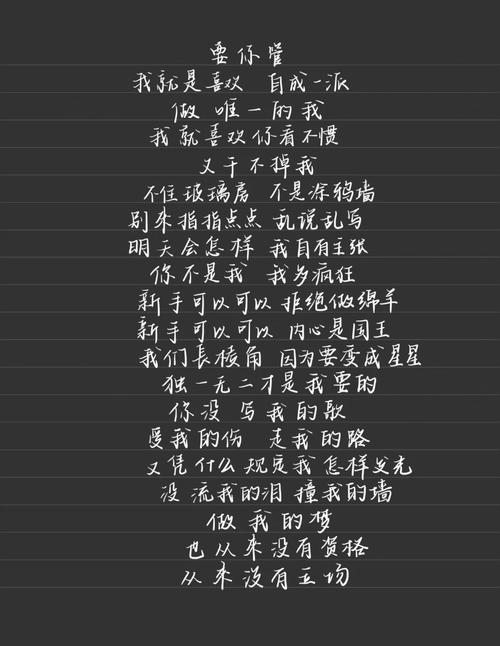 要你管
我就是喜欢 自成一派
做 唯一的我
我就喜欢你看不惯
又干不掉我
不住玻璃房 不是涂鸦墙
别来指指点点 乱说乱写
明天会怎样 我自有主张
你不是我 我多疯狂
新手可以可以 拒绝做绵羊
新手可以可以 内心是国王
我们長棱角 因为要变成星星
独一无二才是我要的
你没 写我的歌
受我的伤 走我的路
又凭什么 规定我 怎样发光
没 流我的泪 撞我的墙
做 我的梦
也从来没有资格
从来没有立场